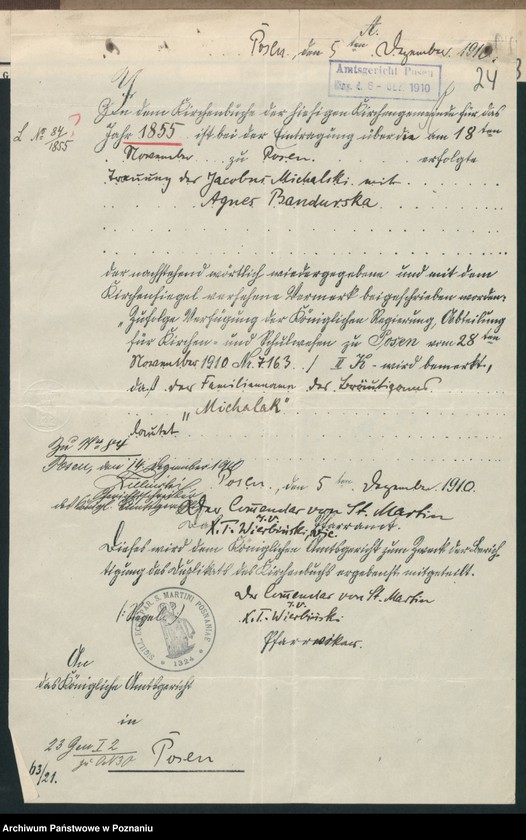 A.
Posen, den 5ten Dezember 1910.
24
Amtsgericht Posen
Eing. d. 6 - DEZ. 1910
In dem Kirchenbuche der hiesigen Kirchengemeinde für das
L. No 84 ?
1855
Jahr 1855 ist bei der Eintragung über die am 18ten
November zu Posen erfolgte
Trauung des Jacobus Michalski mit
Agnes Bandurska
der nachstehend wörtlich wiedergegebene und mit dem
Kirchensiegel versehene Vermerk beigeschrieben worden:
„Zufolge Verfügung der Königlichen Regierung, Abteilung
für Kirchen- und Schulwesen zu Posen vom 28ten
November 1910 Nr. 7163. / II K - wird bemerkt,
daß der Familienname des Bräutigams
„Michalak"
lautet.
Zu No 84
Posen, den 14. Dezember 1910
Posen, den 5ten Dezember 1910.
Der Comendar von St. Martin
I.V.
X. T. Wierbiński, Pfarramt.
Dieses wird dem Königlichen Amtsgericht zum Zweck der Berich-
tigung des Duplikats des Kirchenbuchs ergebenst mitgeteilt.
Der Comendar von St. Martin
I.V.
X. T. Wierbiński
Pfarrvikar.
/: Siegel :/
SIGILL. ECCL. PAR. S. MARTINI POSNANIAE
1324
An
das Königliche Amtsgericht
in
Posen
23 Gen I 2
63/21.
Archiwum Państwowe w Poznaniu